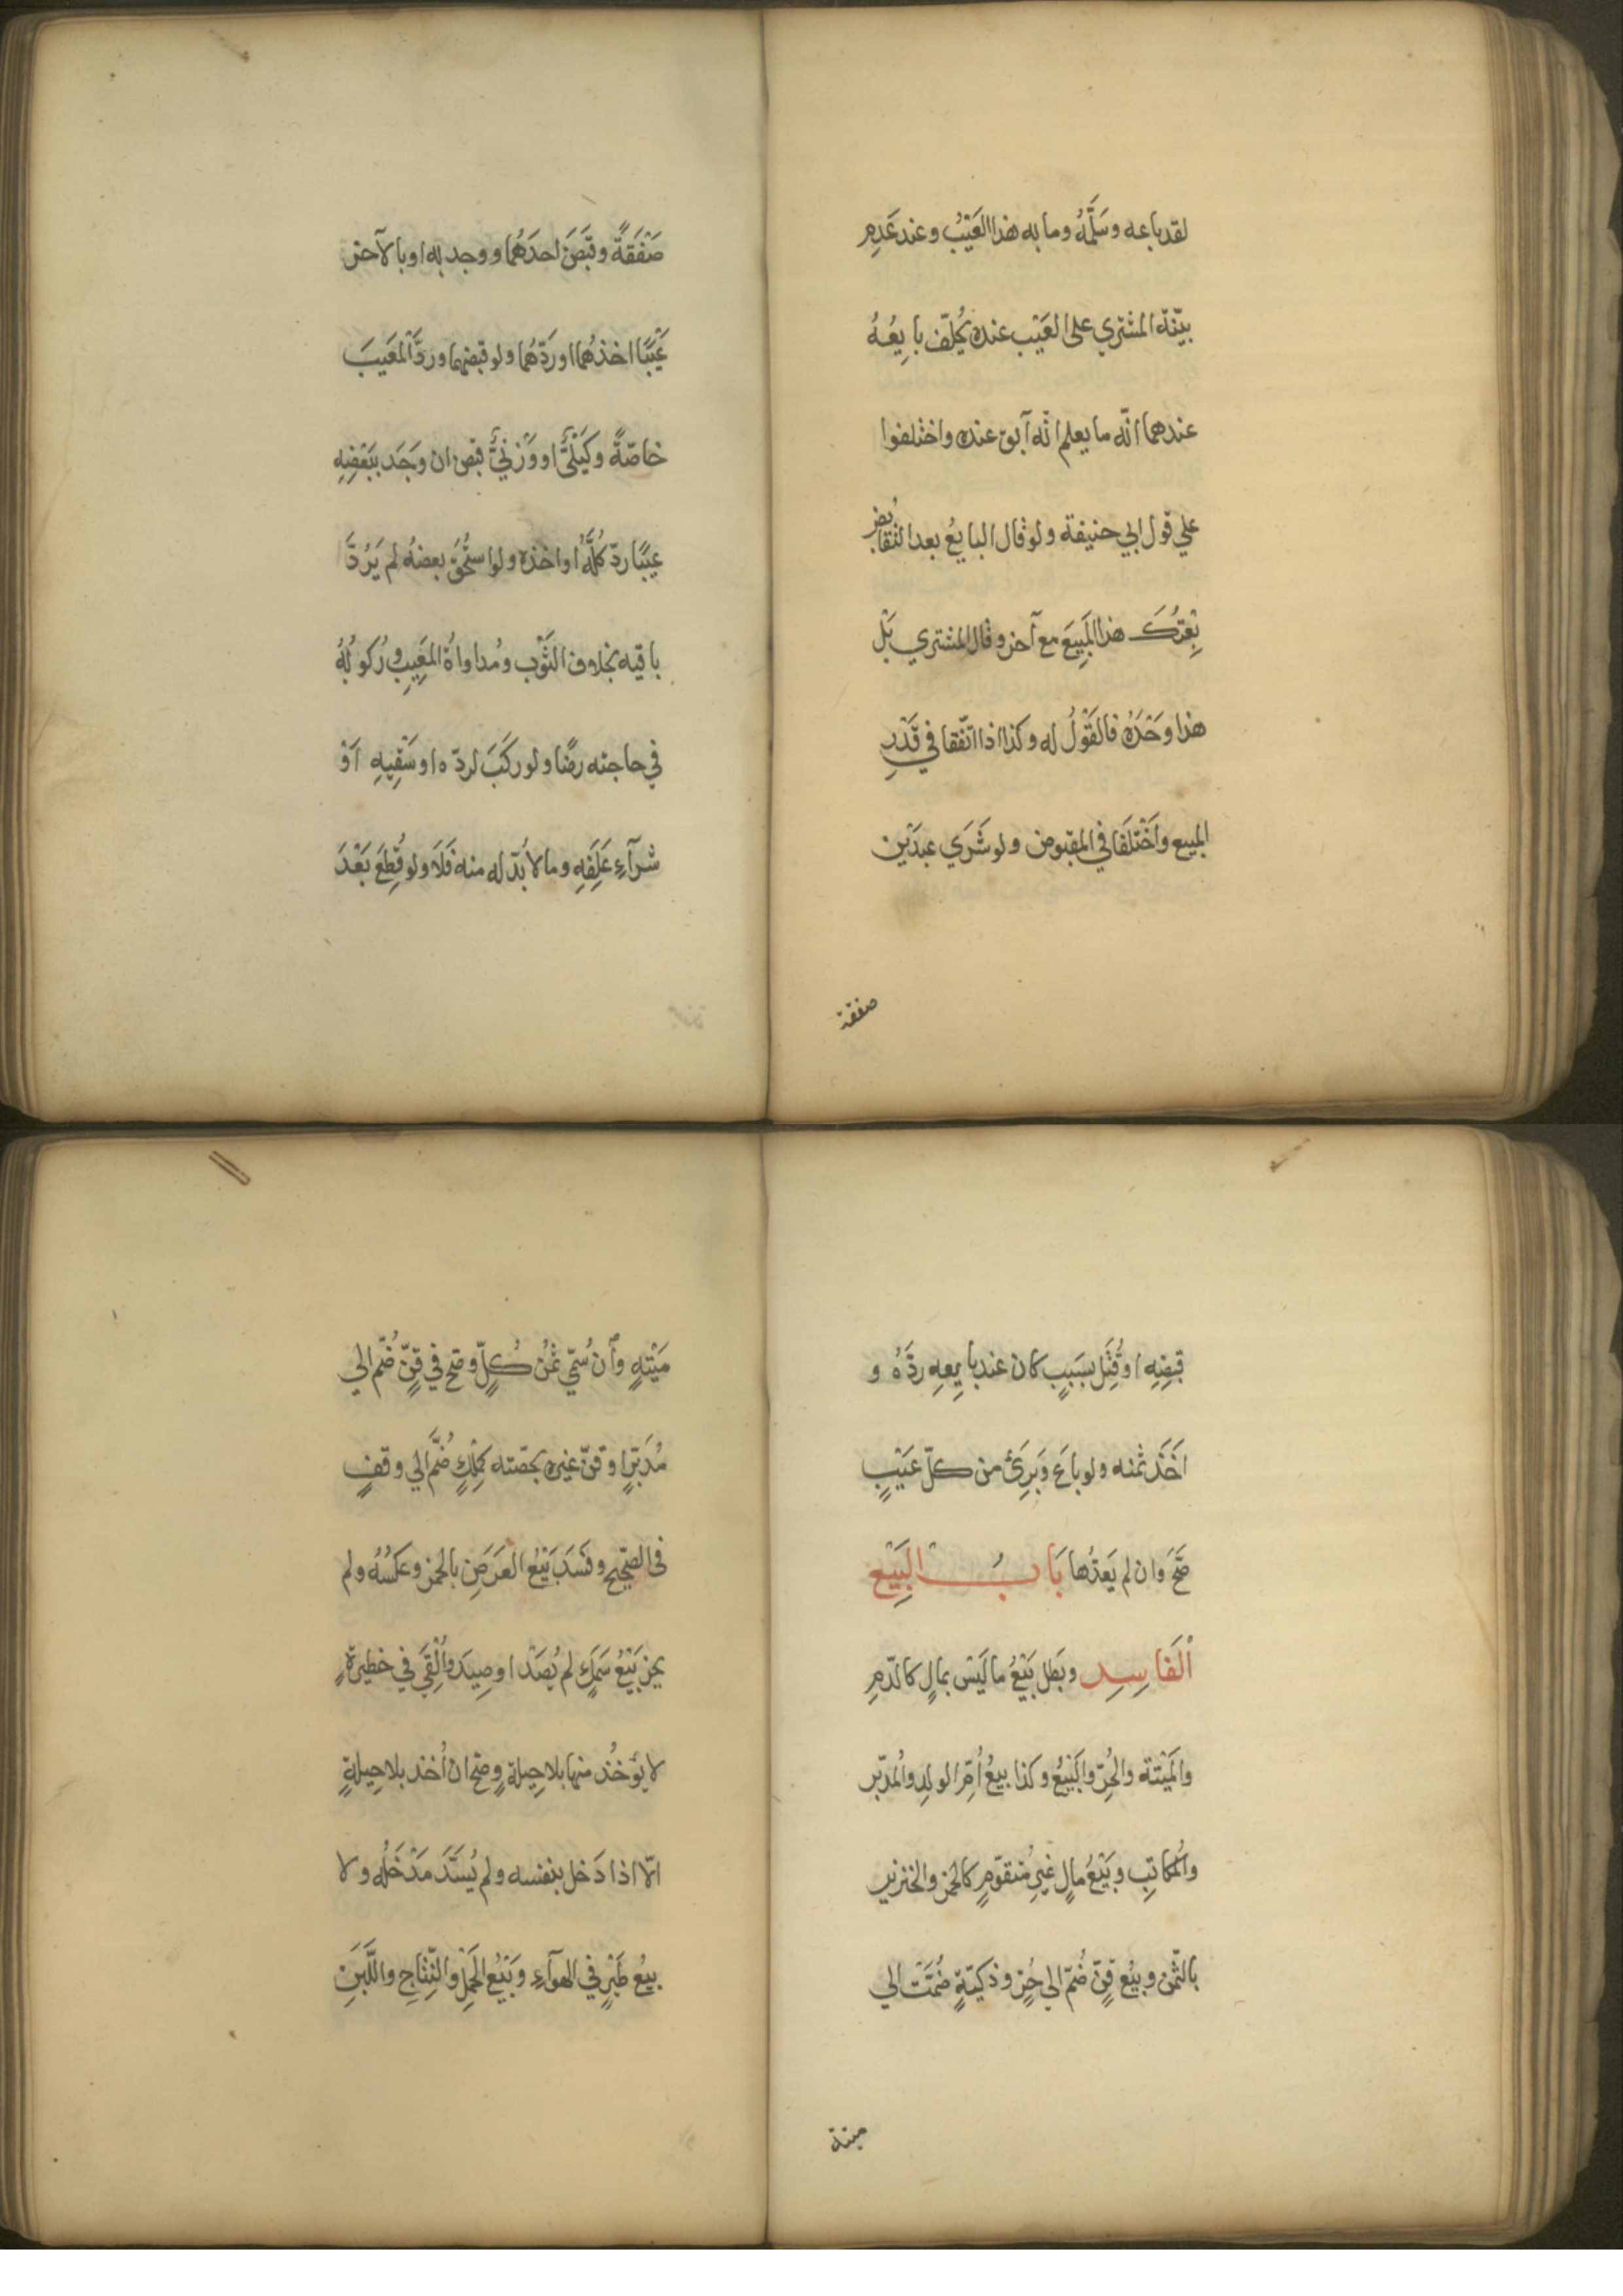 لقد باعه وسَلَّمَهُ وما به هذا العَيْبُ وعند عَدِمِ
بيّنة المشتري على العَيْب عنده يُحلّف بايِعُهُ
عندهما انّه ما يعلم انّه آبق عنده واختلفوا
علي قول ابي حنيفة ولو قال البايعُ بعد التقابُض
بِعْتُكَ هذا المَبِيعَ مع آخر وقال المشتري بَلْ
هذا وَحْدَهُ فالقَوْلُ له وكذا اذا اتّفقا في قَدْرِ
المبيع واَخْتَلَفَا في المقبوض ولو شَرَي عبدَيْن
صفقة
صَفْقَةً وقَبَضَ احدَهُما ووجد به او بالآخر
عَيْبًا اخذهُما اورَدّهُما ولو قبضهما وردَّ المَعيبَ
خاصّةً وكَيْليٌّ او وَزْنيٌّ قبض ان وجَد ببَعْضِهِ
عيبًا ردّ كُلَّهُ او اخذه ولو استُحقّ بعضهُ لم يَرُدَّ
باقيه بخلاف الثَوْب ومُداواةُ المَعِيبِ ورُكوبُهُ
في حاجته رضًا ولو ركَبَ لردّه او سَقْيِهِ اَوْ
شرآءِ عَلَفِهِ وما لا بُدّ له منه فَلَا ولو قُطِعَ بَعْدَ
قبضِهِ او قُتِلَ بسَبَبٍ كان عند بايِعِهِ ردَّهُ و
اَخَذ ثمنه ولو باعَ وَبَرِئَ من كلّ عَيْبٍ
صَحَّ وَان لم يَعدّها بَابُ البَيْعِ
اَلفَاسِدِ وبَطل بَيْعُ ما ليْسَ بمالٍ كالدّمِ
والمَيْتة والحُرِّ والبَيْعُ وكذا بيعُ اُمِّ الولدِ والمُدبّر
والمُكاتبِ وبَيْعُ مالٍ غيرِ متقوّمٍ كالخمر والخنزير
بالثّمن وبيْع قِنّ ضُمّ الي حُرٍّ وذكيّةٍ ضُمّتْ الي
ميتة
مَيْتةٍ وأن سُمّي ثمنُ كُلّ وصَحّ في قِنّ ضُم الي
مُدَبّرٍ او قنّ غيره بحصّته كمِلْكٍ ضُمَّ الي وقفٍ
في الصَحيح وفَسَدَ بَيْعُ العَرَضِ بالخمر وعَكسُهُ ولم
يجز بَيْعُ سَمَكٍ لم يُصَدْ او صِيدَ واُلْقيَ في خطيرةٍ
لا يُؤخُذ منها بلا حِيلةٍ وصحّ ان اُخذ بلا حِيلةٍ
الّا اذا دَخل بنفسه ولم يُسَدَّ مَدْخَلُه ولا
بيعُ طَيْرٍ في الهوآءِ وبَيْعُ الحَمْلِ والنِّتاجِ واللَّبَنِ